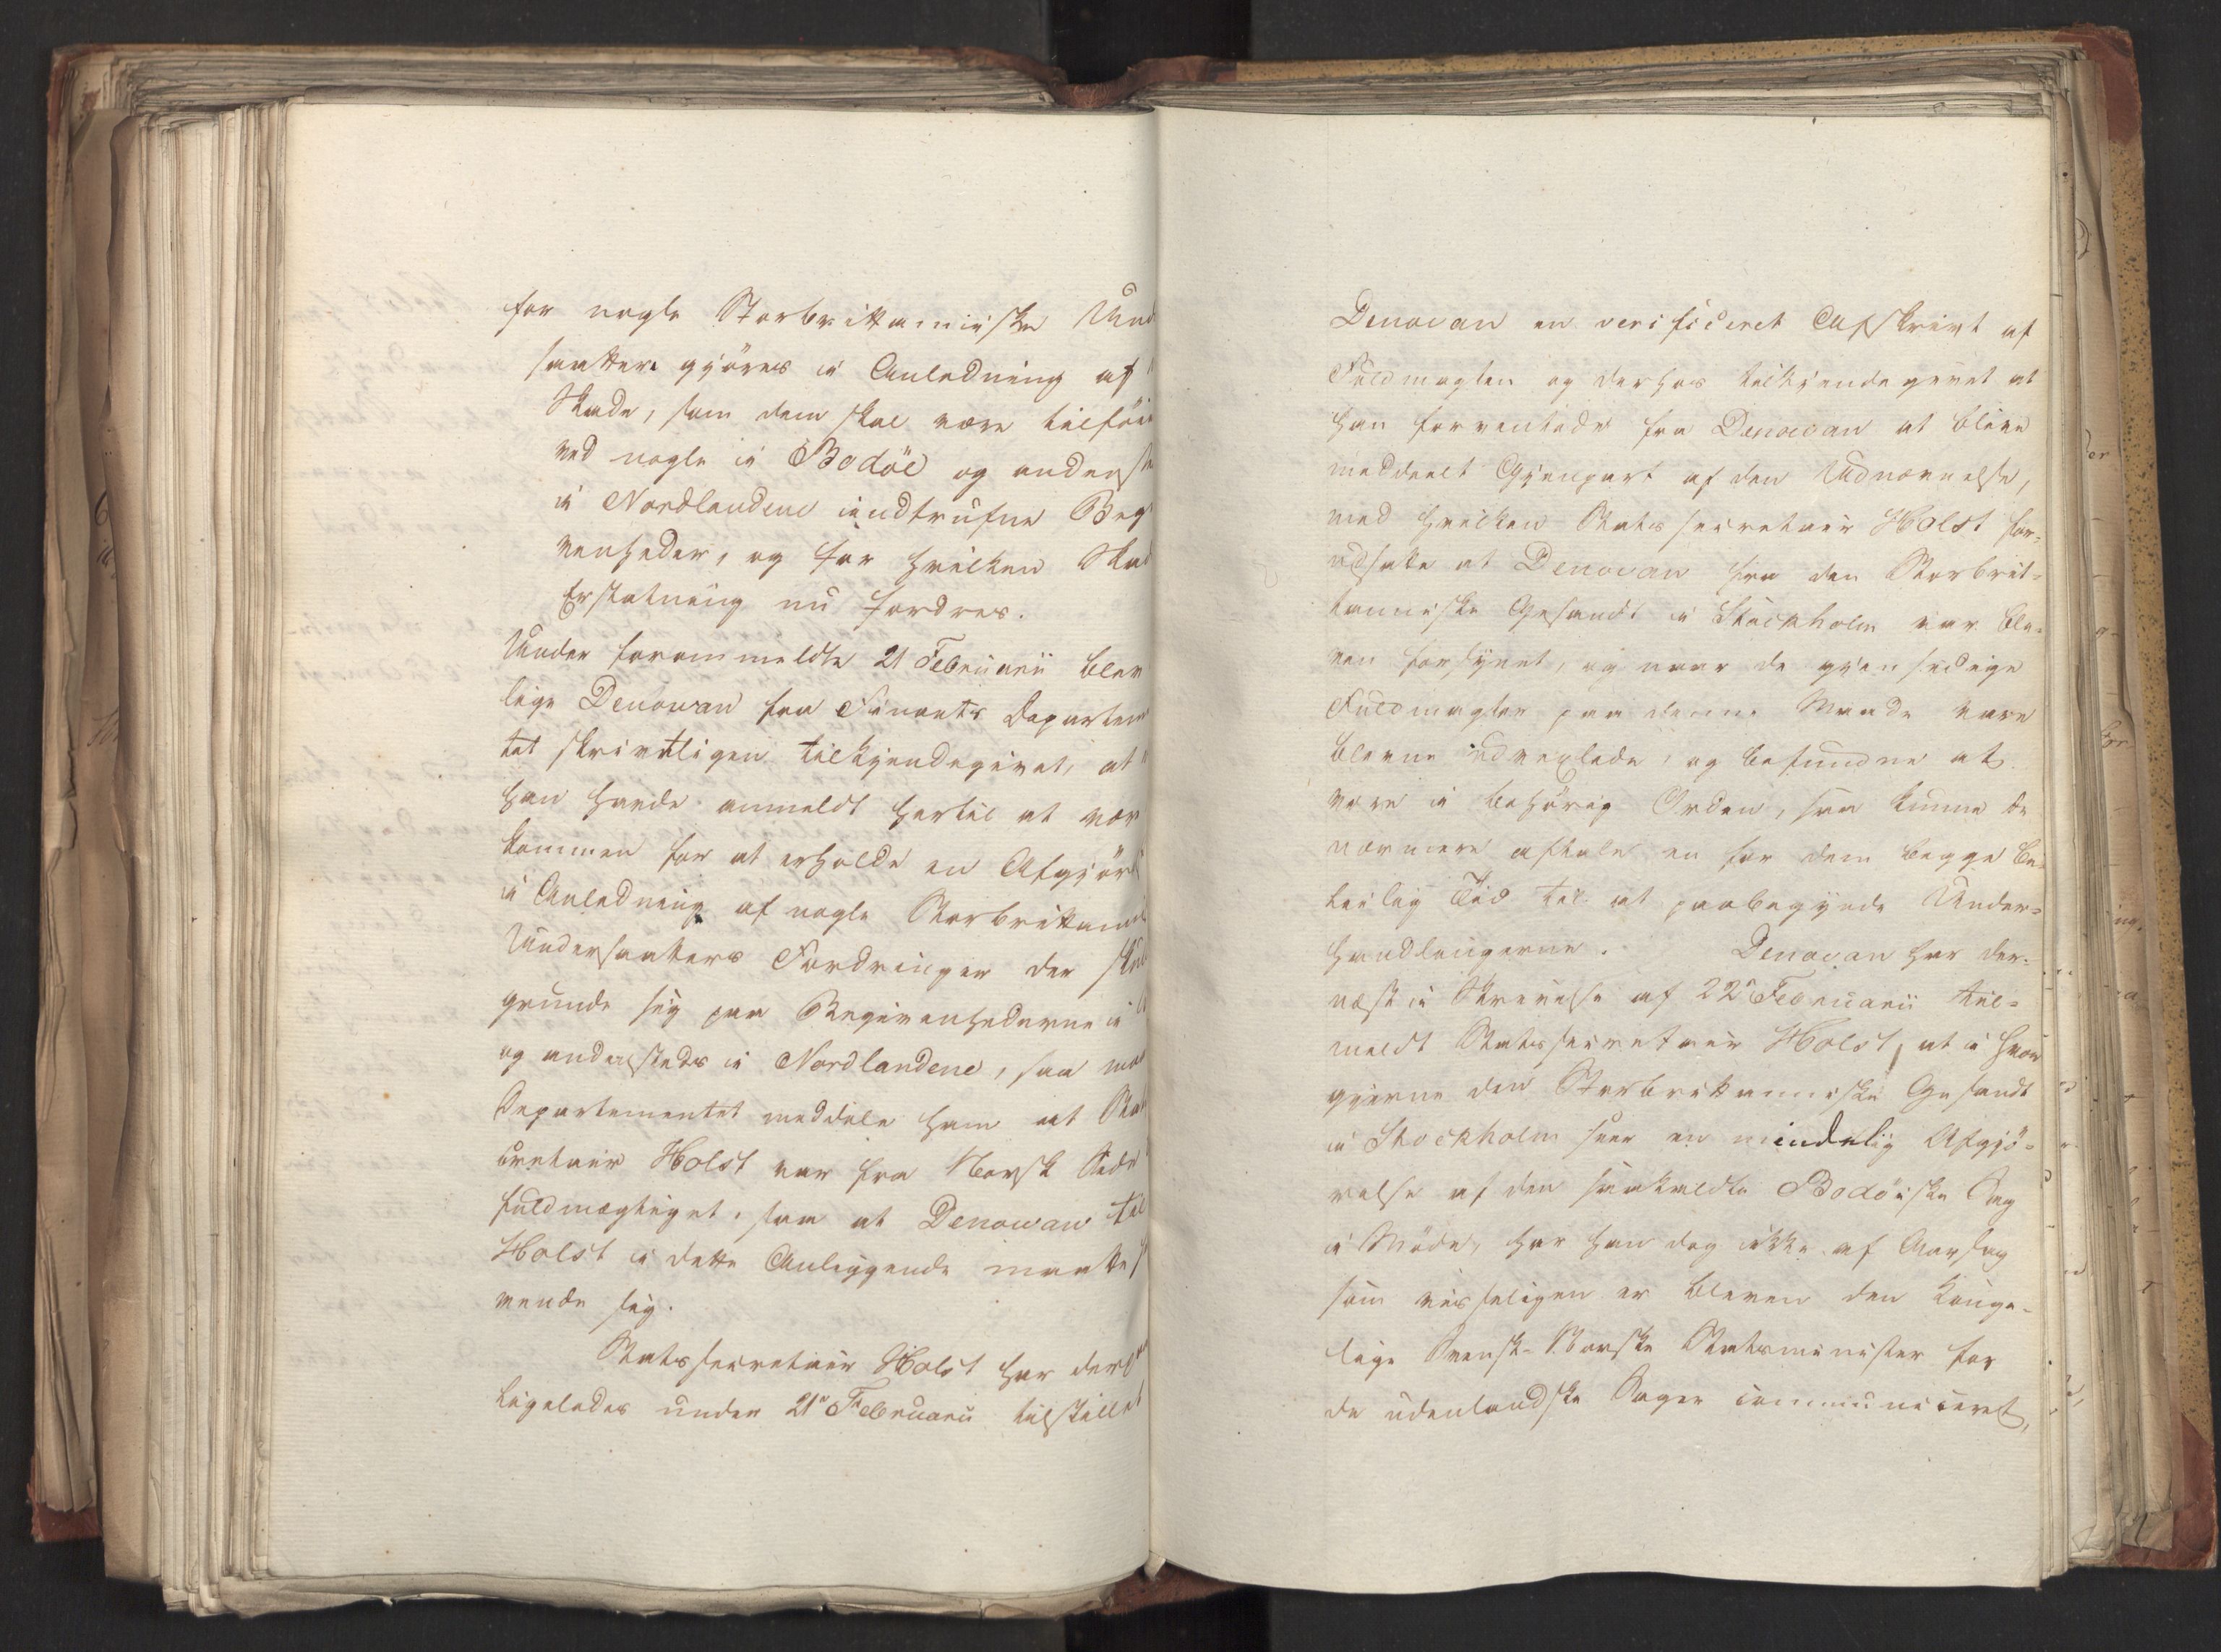 for nogle Storbrittaniiske Und
saatter gjöres i Anledning af
Skade, som dem skal være tilföie
ved nogle i Bodöe og anderste
i Nordlandene indtrufne Begi
venheder, og for hvilken Skad
Erstatning nu fordres.
Under forommeldte 21 Februarii blev
lige Denovan fra Finants Departem
tet skrivtligen tilkjendegivet, at
han havde anmeldt hertil at vær
kommen for at erholde en Afgjör
i Anledning af nogle Storbrittani
Undersaatters Fordringer der skul
grunde sig paa Begivenhederne i
og andersteds i Nordlandene, saa maa
Departementet meddele ham at Stat
cretair Holst var fra Norsk Side
fuldmægtiget, saa at Denovan til
Holst i dette Anliggende maatte h
vende sig.
Statssecretair Holst har der
ligeledes under 21de Februarii tilstillet
Denovan en verificeret Afskrivt af
Fuldmagten og derhos tilkjendegivet at
han forventede fra Denovan at blive
meddeelt Gjenpart af den Udnævnelse,
med hvilken Statssecretair Holst for-
udsatte at Denovan fra den Storbrit-
tanniske Gesandt i Stockholm var ble-
ven forsynet, og naar de gjensidige
Fuldmagter paa denne Maade vare
blevne udvexlede, og befundne at
være i behörig Orden, saa kunne de
nærmere aftale en for dem begge be-
leilig Tid til at paabegynde Under-
handlingerne. Denovan har der-
næst i Skrivelse af 22de Februarii til-
meldt Statssecretair Holst, at i hvor
gjerne den Storbrittanniske Gesandt
i Stockholm seer en mindelig Afgjö-
relse af den saakaldte Bodöiske Sag
i Möde, har han dog ikke af Aarsag
som visseligen er bleven den Konge-
lige Svensk-Norske Statsminister for
de udenlandske Sager communiceret,